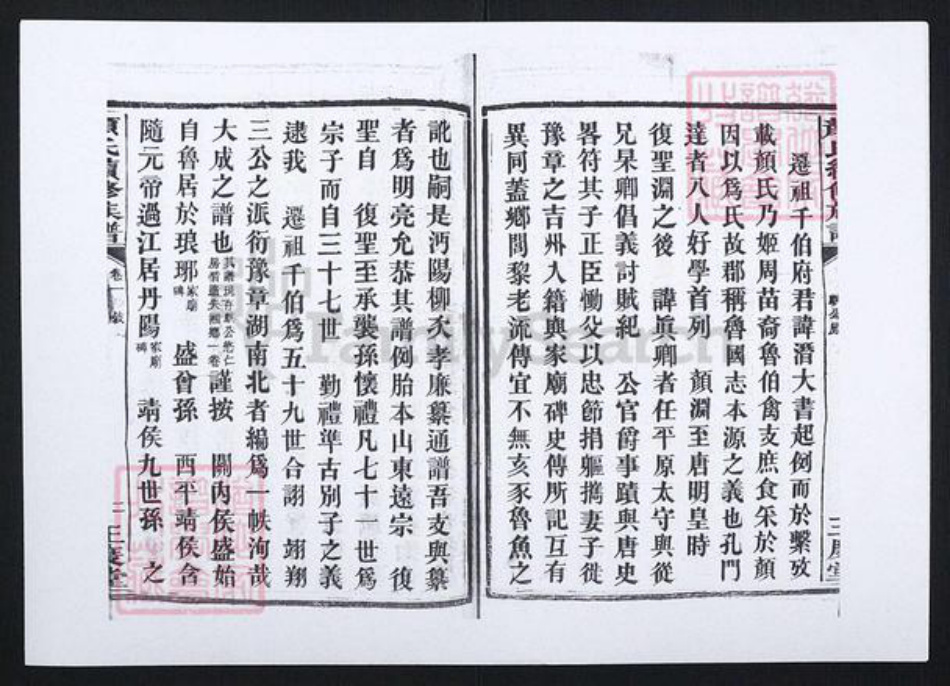 遷祖千伯府君諱潛大書起例而於繫攷
載顏氏乃姬周苗裔魯伯禽支庶食采於顏
因以爲氏故郡稱魯國志本源之義也孔門
達者八人好學首列　顏淵至唐明皇時
復聖淵之後　諱眞卿者任平原太守與從
兄杲卿倡義討賊紀　公官爵事蹟與唐史
畧符其子正臣慟父以忠節捐軀攜妻子從
豫章之吉州入籍與家廟碑史傳所記互有
異同蓋鄉閭黎老流傳宜不無亥豕魯魚之
訛也嗣是沔陽柳夭孝廉纂通譜吾支與纂
者爲明亮允恭其譜例胎本山東遠宗　復
聖自　復聖至承襲孫懷禮凡七十一世爲
宗子而自三十七世　勤禮準古別子之義
逮我　遷祖千伯爲五十九世合詡　翊翔
三公之派衍豫章湖南北者編爲一帙洵哉
大成之譜也謹按　關內侯盛始
自魯居於琅琊家廟碑　盛曾孫　西平靖侯含
隨元帝過江居丹陽家廟碑　靖侯九世孫　之
卷一
FamilySearch